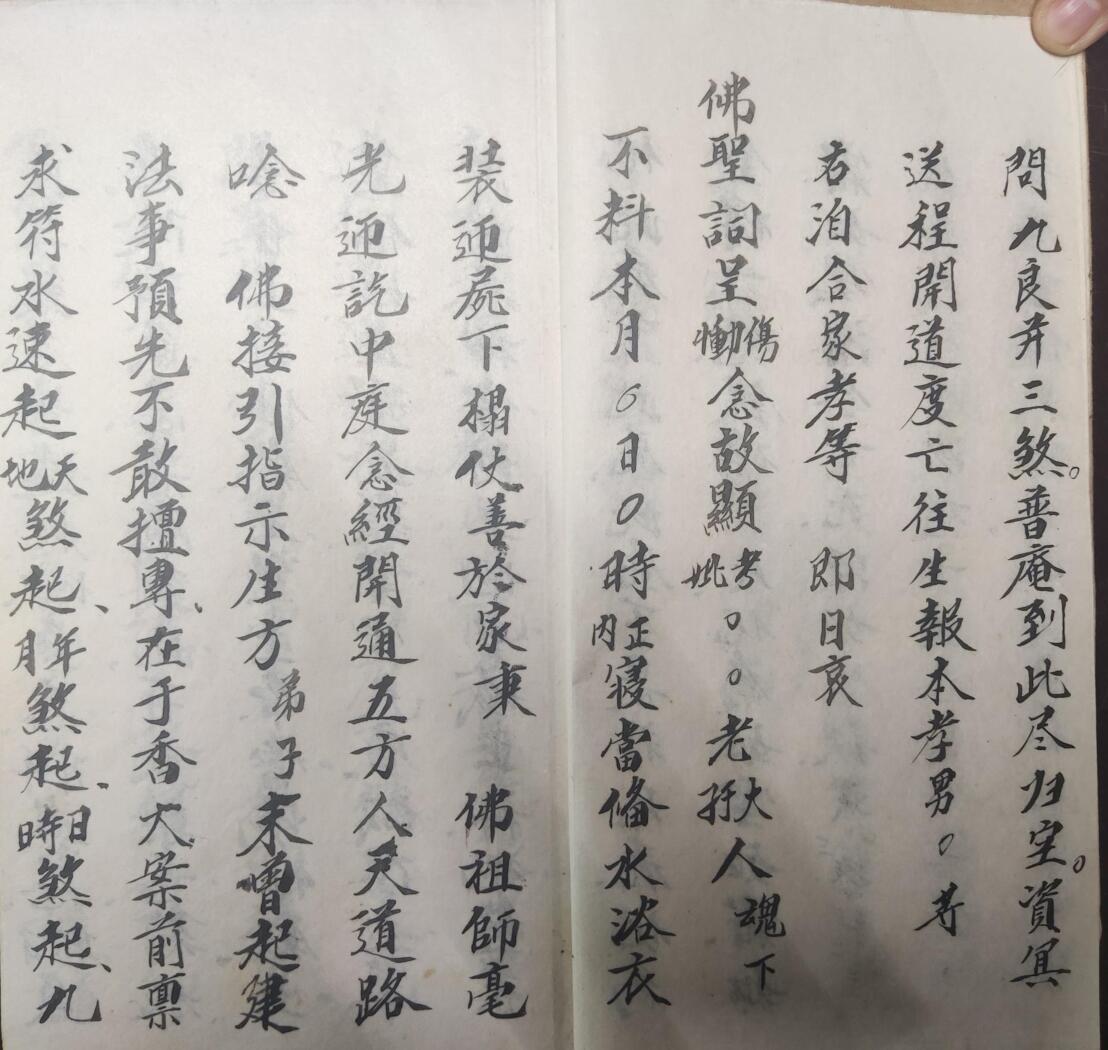 問九良弃三煞。普庵到此尽归空。資冥
送程開道度亡往生報本孝男。等
右洎合家孝等 即日哀
佛聖詞呈慟傷念故顯考妣。。老大孺人魂下
不料本月〇日〇時正寢内當俻水浴衣
裝迊屍下榻仗善於家秉 佛祖師毫
光迊訖中庭念經開通五方人天道路
唸 佛接引指示生方弟子未曾起建
法事預先不敢擅專、在于香火案前禀
求符水速起天地煞起、年月煞起、日時煞起、九